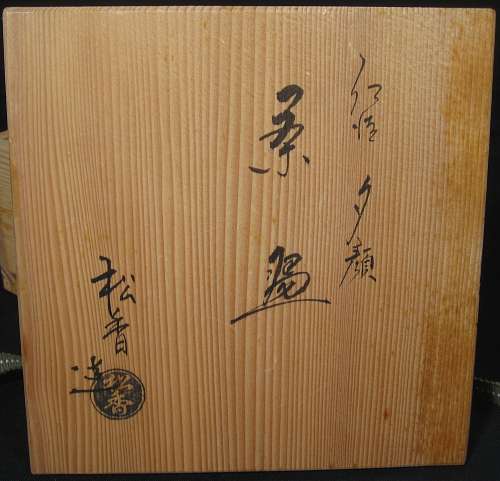 夕顔
茶盌
松香造
松香